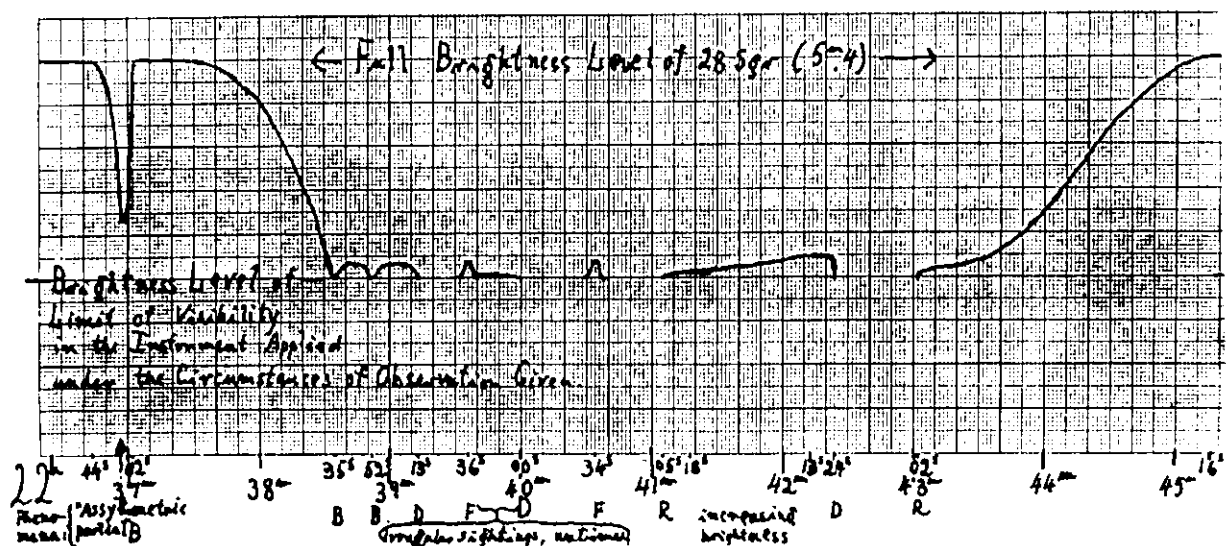 ← Full Brightness Level of 28 Sgr (5ᵐ.4) →
Brightness Level of
Limit of Visibility
in the Instrument Applied
under the Circumstances of Observation Given.
22ʰ 44ˢ 02ˢ 35ˢ 52ˢ 13ˢ 36ˢ 00ˢ 34ˢ 05ˢ 18ˢ 13ˢ 24ˢ 02ˢ 16ˢ
37ᵐ 38ᵐ 39ᵐ 40ᵐ 41ᵐ 42ᵐ 43ᵐ 44ᵐ 45ᵐ
Pheno-
mena: "Assymetric
partial B B B D F D F R increasing
brightness D R
irregular sightings, untimed